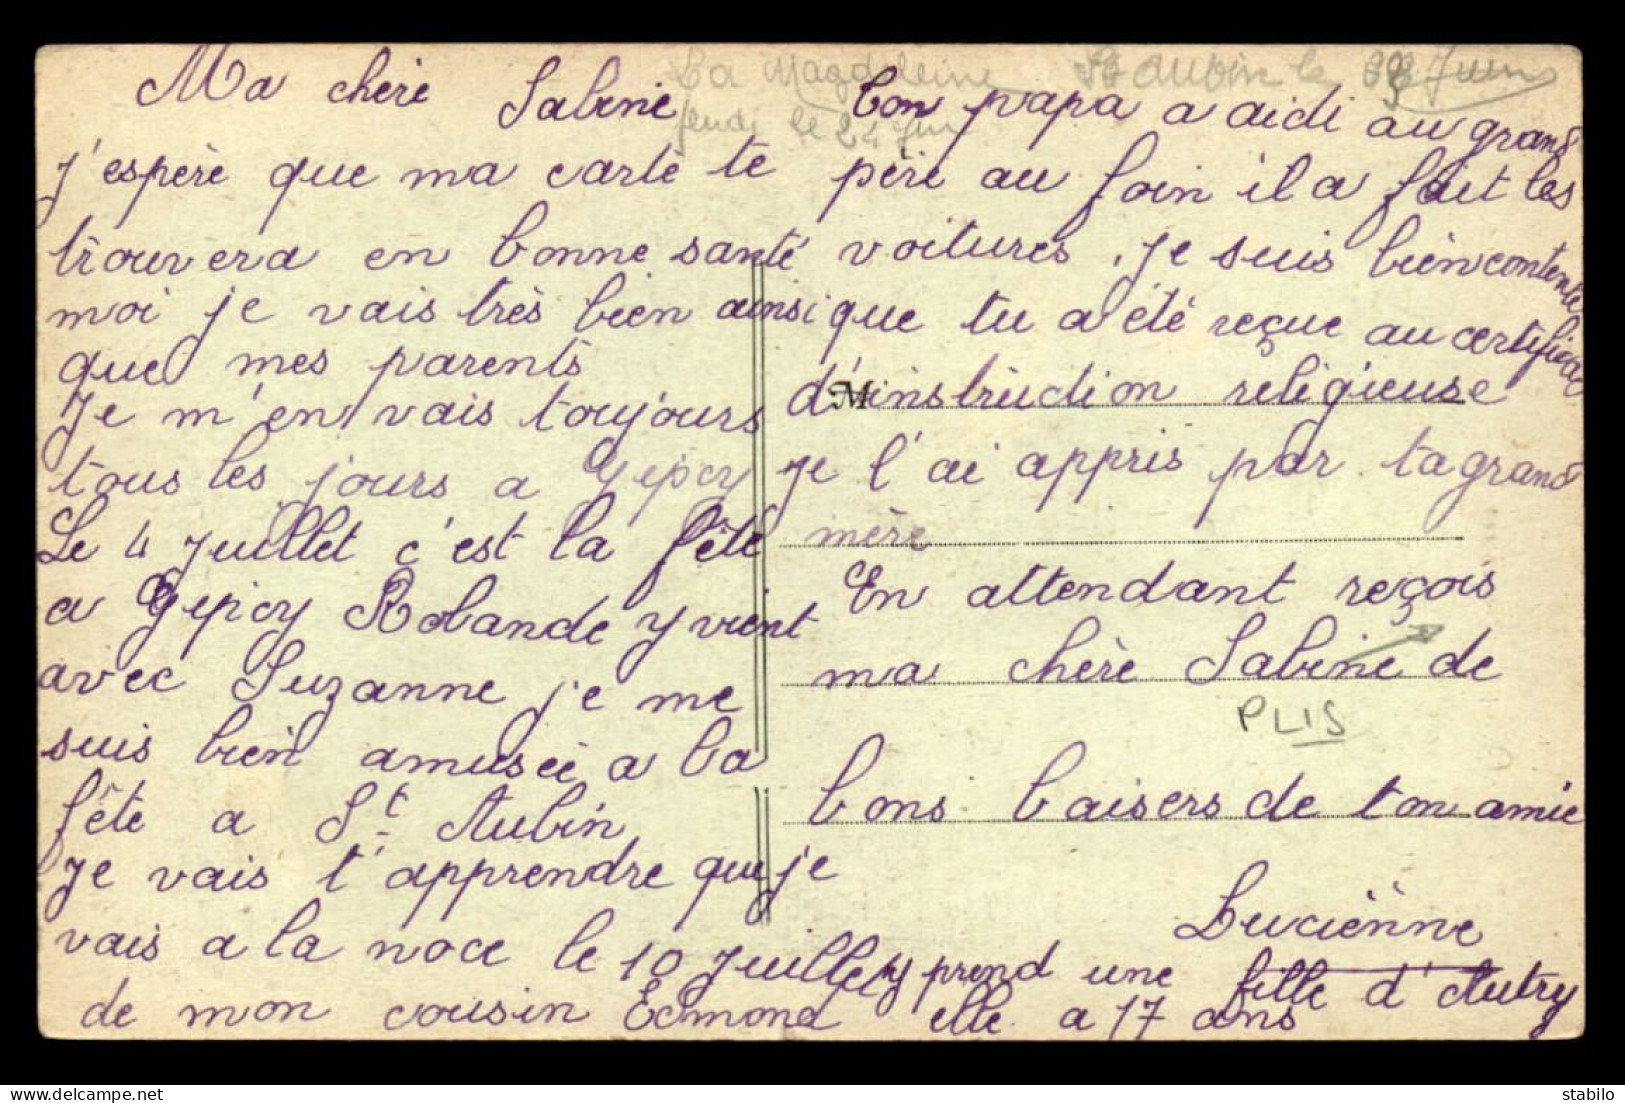 La Magdeleine St Aubin le Juin
jeudi le 24 Juin
Ma chère Sabine
J'espère que ma carte te
trouvera en bonne santé
moi je vais très bien ainsi
que mes parents
Je m'en vais toujours
tous les jours a Gepcy
Le 4 Juillet c'est la fête
a Gepcy Rolande y vient
avec Suzanne je me
suis bien amusée a la
fête a St Aubin
Je vais t'apprendre que je
vais a la noce le 10 Juillet
de mon cousin Edmond
Ton papa a aidé au grand
père au foin il a fait les
voitures. Je suis bien contente
que tu a été reçue au certificat
d'instruction religieuse
M
je l'ai appris par ta grand
mère
En attendant reçois
ma chère Sabine de
PLIS
bons baisers de ton amie
Lucienne
il prend une fille d'Autry
elle a 17 ans
© stabilo • delcampe.net